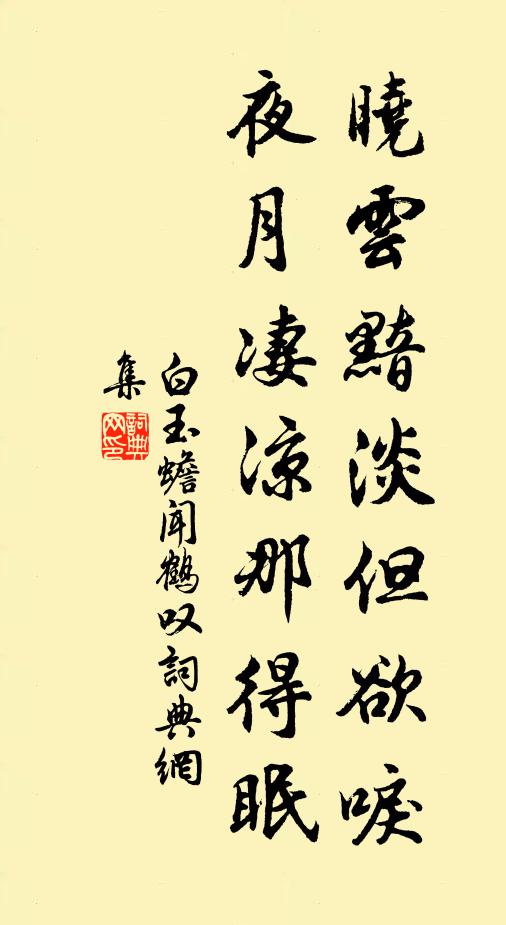 曉雲黯淡但欲唳
夜月淒涼那得眠
白玉蟾聞鶴叹詞典網
集
詞典网印